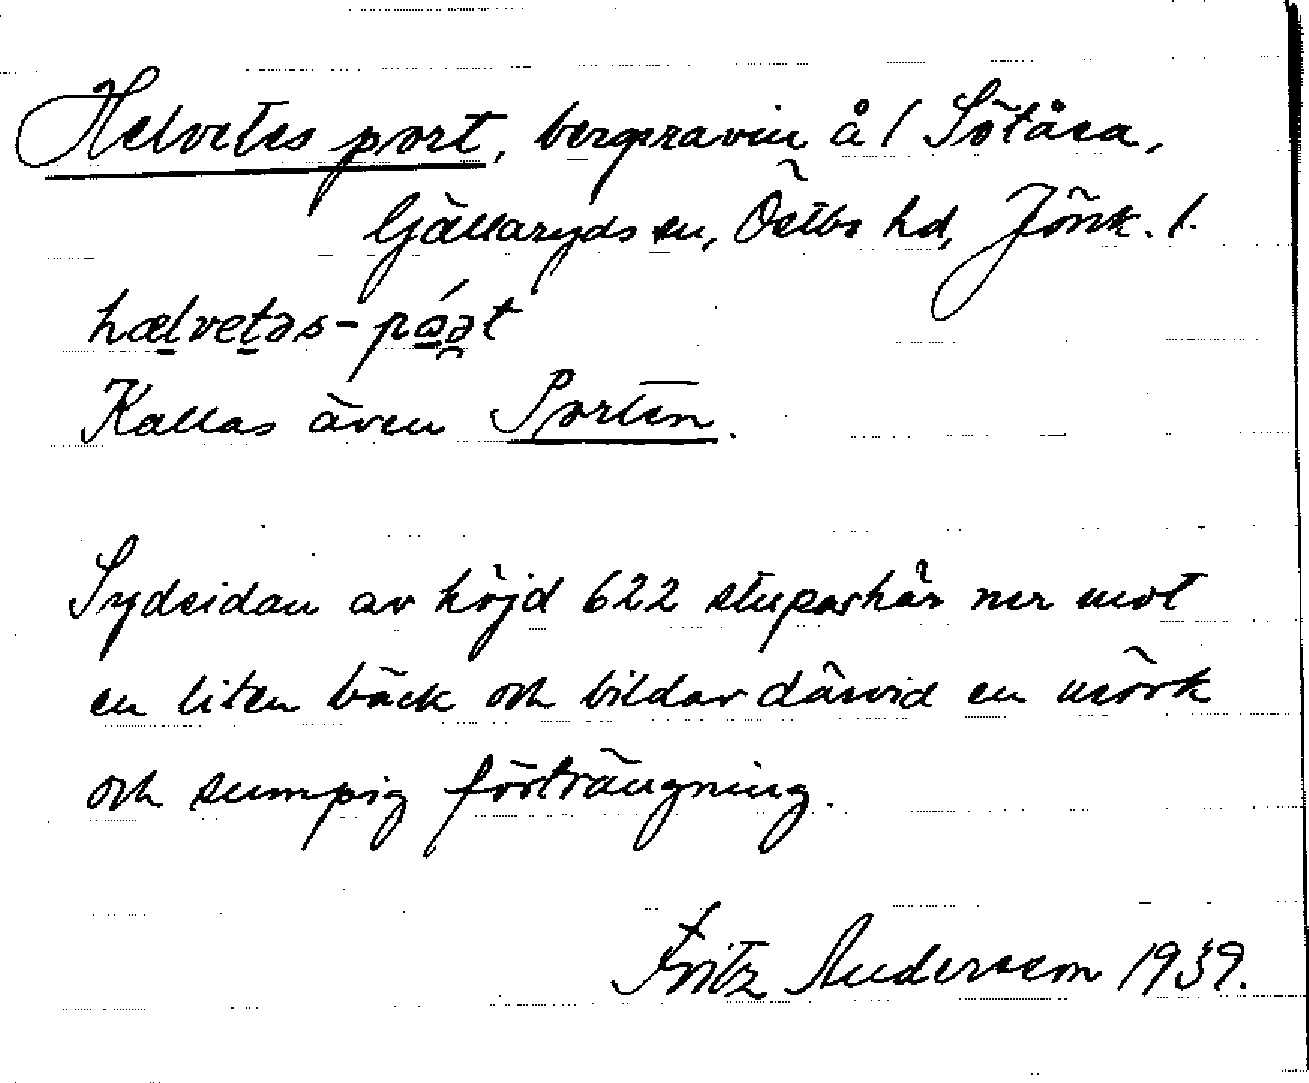 Helvetes port, bergsravin å 1 Sötåsa,
Gällaryds sn, Östbo hd, Jönk. l.
hælvetəs-pó̱ə̯t
Kallas även Porten.
Sydsidan av höjd 622 stupar här ner mot
en liten bäck och bildar därvid en mörk
och sumpig förträngning.
Fritz Andersson 1939.